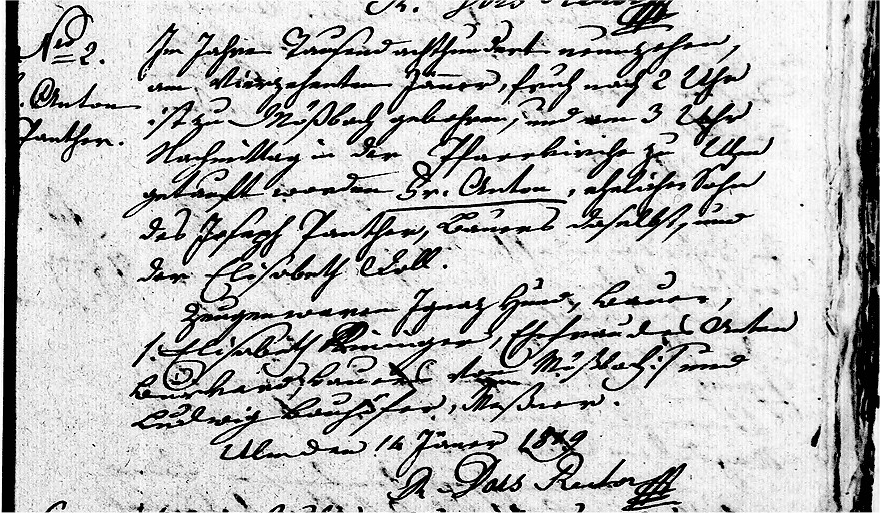 Nro 2.
Anton
Panther.
Im Jahre Tausend achthundert neunzehen,
am Vierzehenten Jäner, früh nach 2 Uhr
ist zu Mößbach gebohren, und um 3 Uhr
Nachmittag in der Pfarrkirche zu Ulm
getauft worden Fr. Anton, ehlicher Sohn
des Joseph Panther, Bauers daselbst, und
der Elisabeth Doll.
Zeugen waren Ignaz Hund, Bauer,
Elisabeth, Ehefrau des Anton
Burkard, Bauers von Mößbach; und
Ludwig Bauhöfer, Meßner.
Ulm den 14 Jäner 1819
Dors Rector